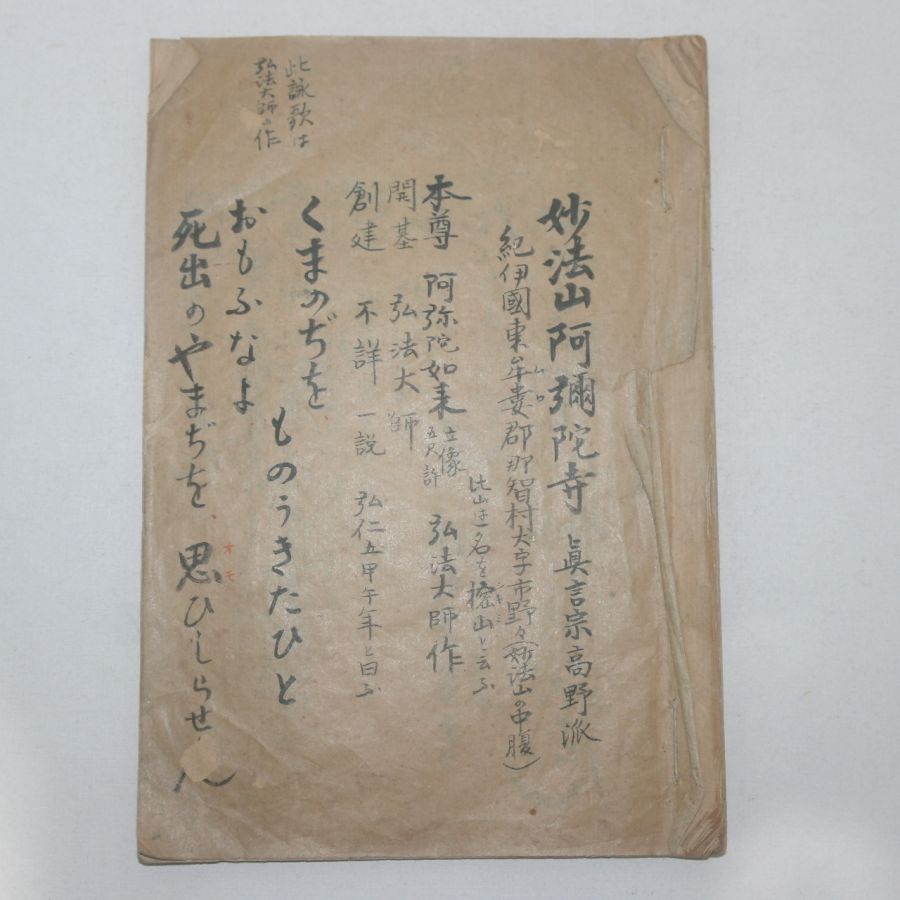 妙法山阿彌陀寺 眞言宗高野派
紀伊國東牟婁郡那智村大字市野々(妙法山の中腹)
ムロ
此山一名を樒山と云ふ
シキミ
本尊 阿弥陀如来 立像 五尺許 弘法大師作
開基 弘法大師
創建 不詳 一説 弘仁五甲午年と曰ふ
くまのぢを ものうきたひと
おもふなよ
死出のやまぢを、思ひしらせん
オモ
此詠歌は
弘法大師の作